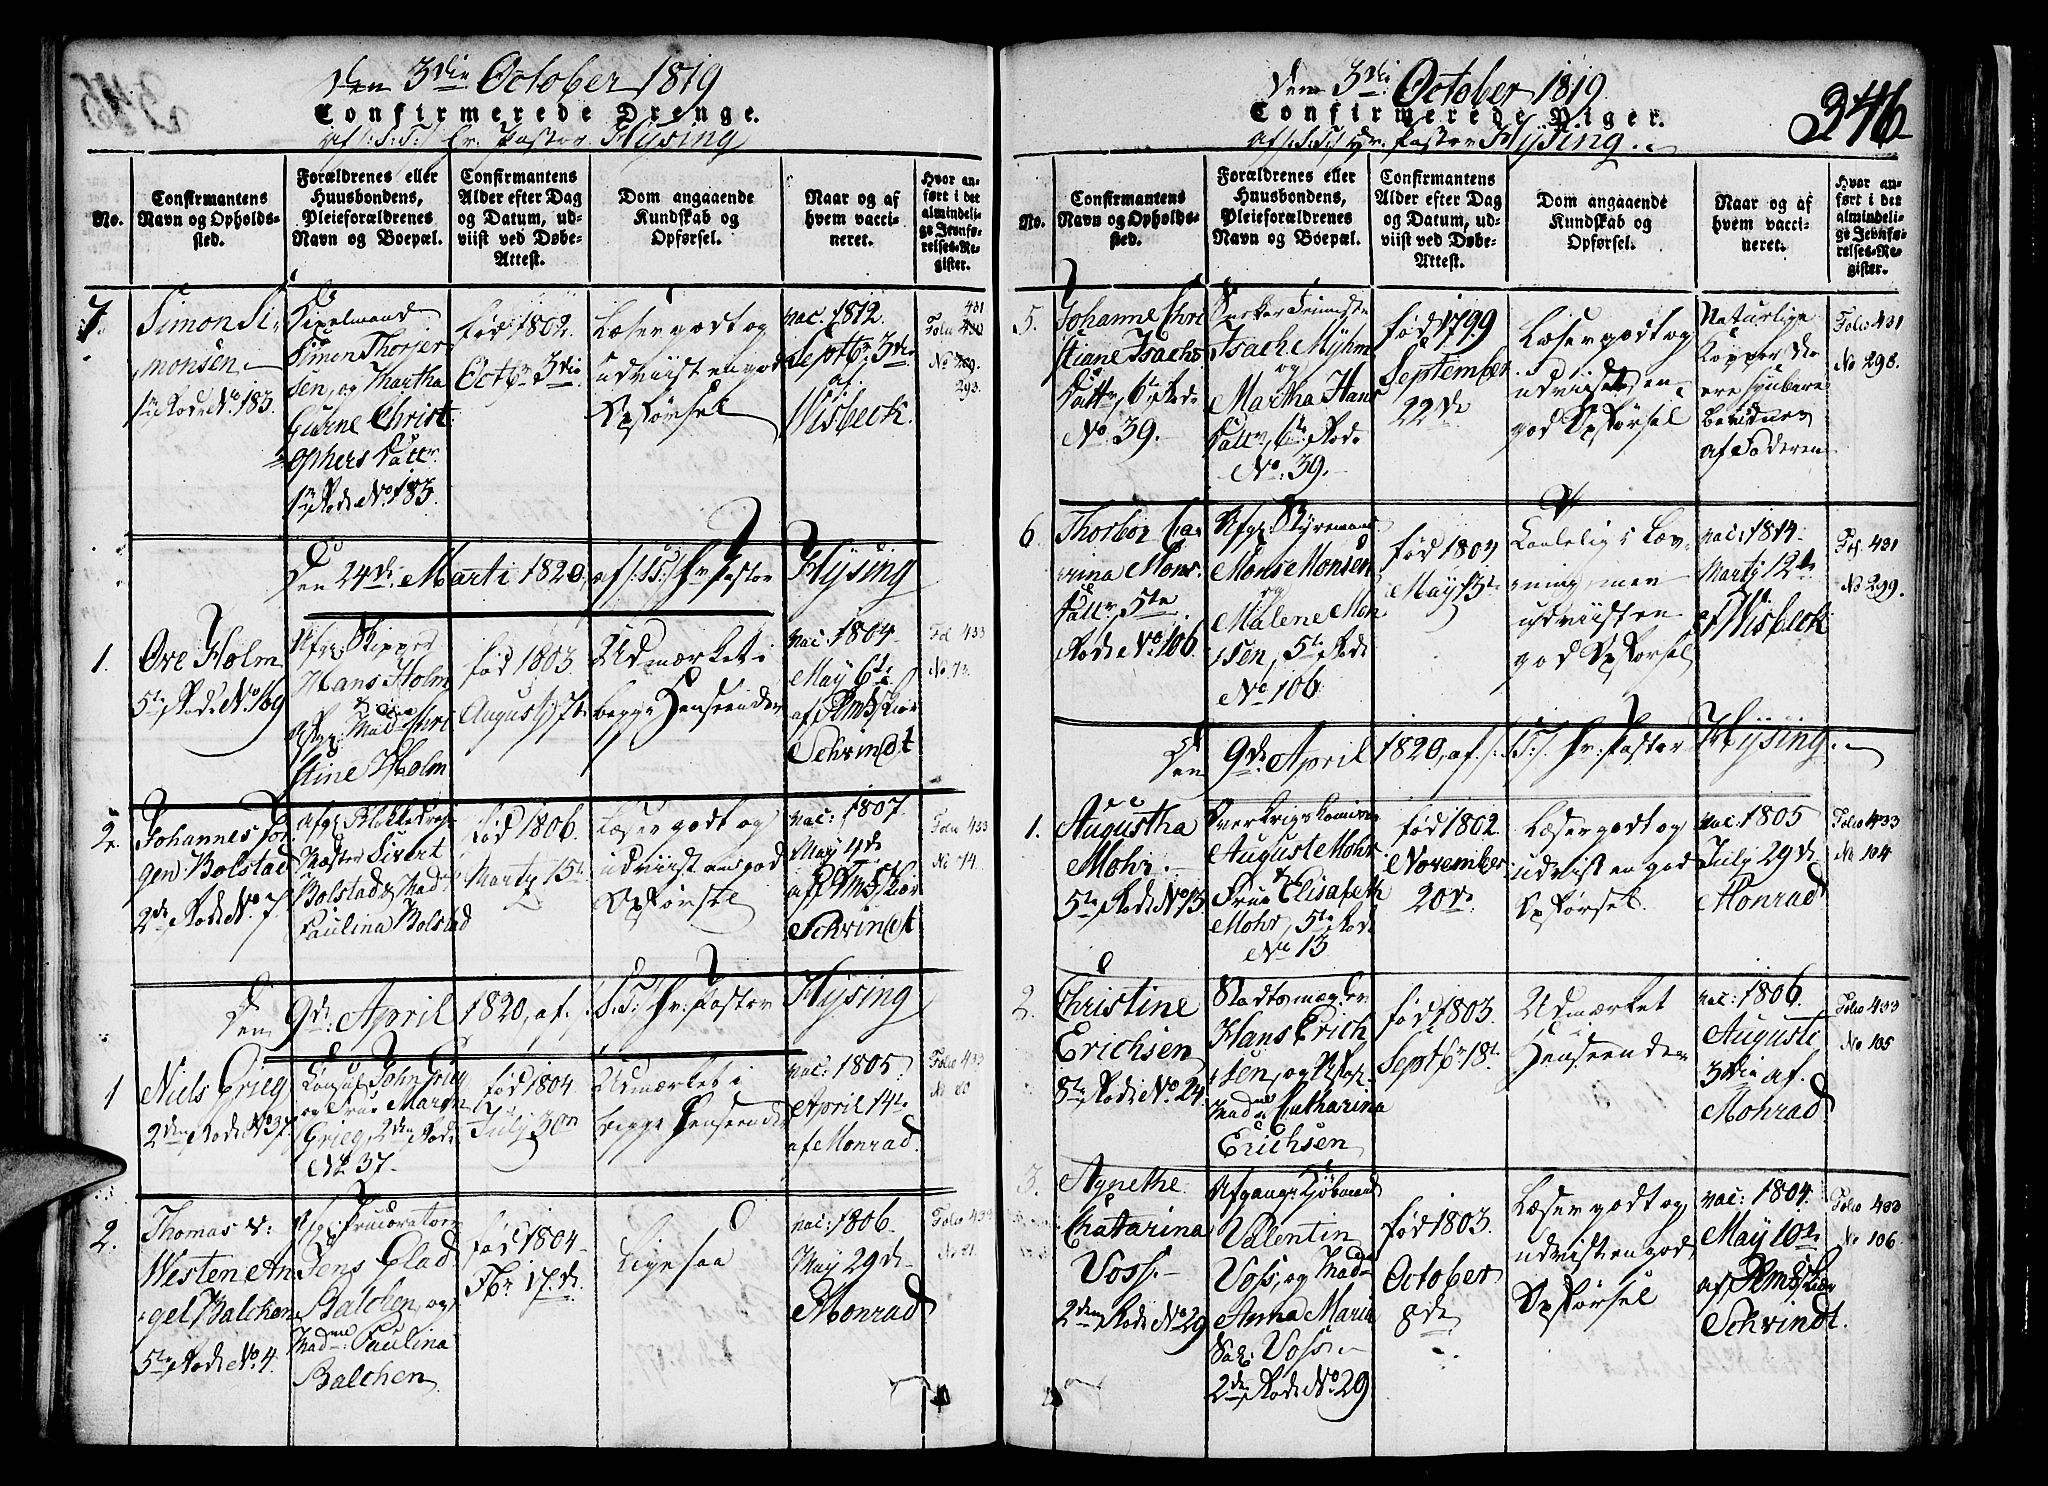 Den 3die October 1819
Confirmerede Drenge.
af /:S:T:/ Hr. Pastor Hysing
No.
Confirmantens
Navn og Opholds-
sted.
Forældrenes eller
Huusbondens,
Pleieforældrenes
Navn og Boepæl.
Confirmantens
Alder efter Dag
og Datum, ud-
viist ved Døbe-
Attest.
Dom angaaende
Kundskab og
Opførsel.
Naar og af
hvem vacci-
neret.
Hvor an-
ført i det
almindeli-
ge Jevnfø-
relses-Re-
gister.
7.
Simon Si-
monsen
1te Rode No 183.
Simon Thorjer
sen, og Martha
Gurine Christ
ophers Datter
1te Rode No 183.
født 1802.
Octbr 3die
Læser godt og
udviist en god
Opførsel
vac: 1812.
Septbr 3die
af
Wisbeck
431
Folio 430
No 269.
293.
Den 24de Marti 1820, af /:S:T:/ Hr: Pastor Hysing
1.
Ove Holm
5te Rode No 169
Afg: Skipper
Hans Holm
& Afg: Mad Chri
stine Holm
født 1803
Augusty 7de
Udmærket i
begge Henseender
vac: 1804
May 6te
af Amts Kior
Schvindt
Fol 433
No 73
2.
Johannes Jør
gen Bolstad
2de Rode No 7.
Afg:
Mæster Sivert
Bolstad & Mad
Paulina Bolstad
født 1806.
Marty 15de
Læser godt og
udviist en god
Opførsel
vac: 1807.
May 4de
af Amts Kior
Schvindt
Folio 433
No 74.
Den 9de April 1820, af /:S:T:/ Hr: Pastor Hysing
1
Niels Grieg
2den Rode No 37.
Consul John Grieg
og Frue Maren
Grieg, 2den Rode
No 37.
født 1804.
July 30te
Udmærket i
begge Henseender
vac: 1805.
April 14de
af Monrad.
Folio 433
No 80
2.
Thomas v:
Westen An
gel Balchen
5te Rode No 4.
Afg: Procurator
Jens Glad
Balchen, og
Madme Paulina
Balchen
født 1804
7br 17de.
Ligesaa
vac: 1806.
May 29de
Monrad
Folio 433
No 81.
Den 3die October 1819.
Confirmerede Piger.
af /:S:T:/ Hr: Pastor Hysing.
346
No.
Confirmantens
Navn og Opholds-
sted.
Forældrenes eller
Huusbondens,
Pleieforældrenes
Navn og Boepæl.
Confirmantens
Alder efter Dag
og Datum, ud-
viist ved Døbe-
Attest.
Dom angaaende
Kundskab og
Opførsel.
Naar og af
hvem vacci-
neret.
Hvor an-
ført i det
almindeli-
ge Jevnfø-
relses-Re-
gister.
5.
Johanne Chri
stiane Isachs
Datter, 6te Rode
No 39.
Isach Myhm
og
Martha Hans
Datter, 6te Rode
No: 39.
født 1799
September
22de
Læser godt og
udviist en
god Opførsel
Naturlige
Kopper
bevidnes
af Faderen
Folio 431
No 298.
6.
Thorbor Ca
rina Mons
Datter, 5te
Rode No 106
Afg: Styremand
Mons Monsen
og
Malene Mon
sen, 5te Rode
No 106
født 1804
May 13de
Kaalelig i Læs-
ning, men
udviist en
god Opførsel
vac: 1814.
Marty 12te
af Wisbeck
Fol. 431
No 299.
Den 9de April 1820, af /:S:T:/ Hr: Pastor Hysing.
1.
Augustha
Mohr.
5te Rode No 13.
August Mohr
& Frue Elisabeth
Mohr, 5te Rode
No 13
født 1802.
November
20de
Læser godt og
udvist en god
Opførsel.
vac. 1805
July 29de
Monrad
Folio 433
No 104
2.
Christine
Erichsen
8te Rode No 24.
Stadtsmægler
Hans Erich
sen, og Afg:
Madme Catharina
Erichsen
født 1803.
Septbr 18de
Udmærket
i
Henseender
vac: 1806.
Auguste
3die af
Monrad
Folio 433
No 105
3.
Agnethe
Chatarina
Voss.
2den Rode No 29
Afgangne Kjøbmand
Valentin
Voss, og Mad
Anna Maria
Voss
2den Rode No 29
født 1803.
October
8de
Læser godt og
udvist en god
Opførsel
vac: 1804.
May 10de
af Amts Kior
Schvindt.
Folio 433
No 106